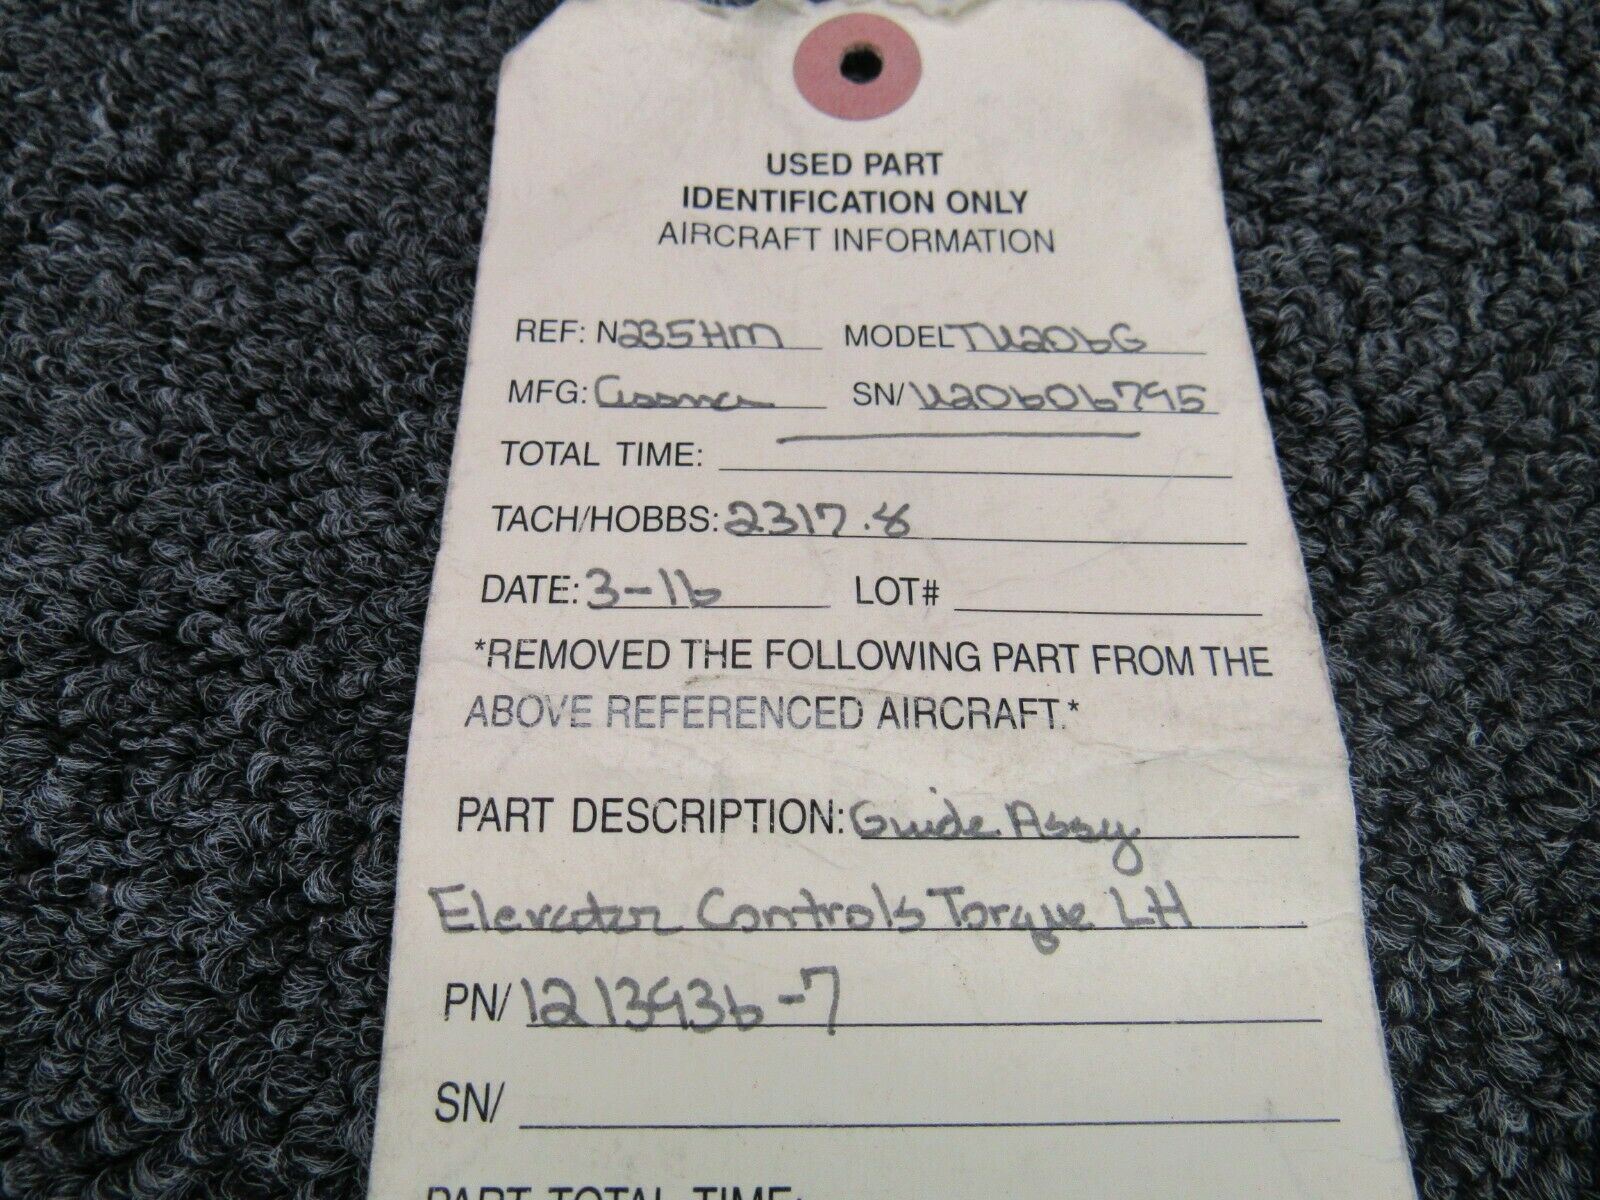 USED PART
IDENTIFICATION ONLY
AIRCRAFT INFORMATION
REF: N235HM MODEL TU206G
MFG: Cessna SN/ U20606795
TOTAL TIME:
TACH/HOBBS: 2317.8
DATE: 3-16 LOT#
*REMOVED THE FOLLOWING PART FROM THE
ABOVE REFERENCED AIRCRAFT.*
PART DESCRIPTION: Guide Assy
Elevator Controls Torque LH
PN/ 1213936-7
SN/
PART TOTAL TIME: